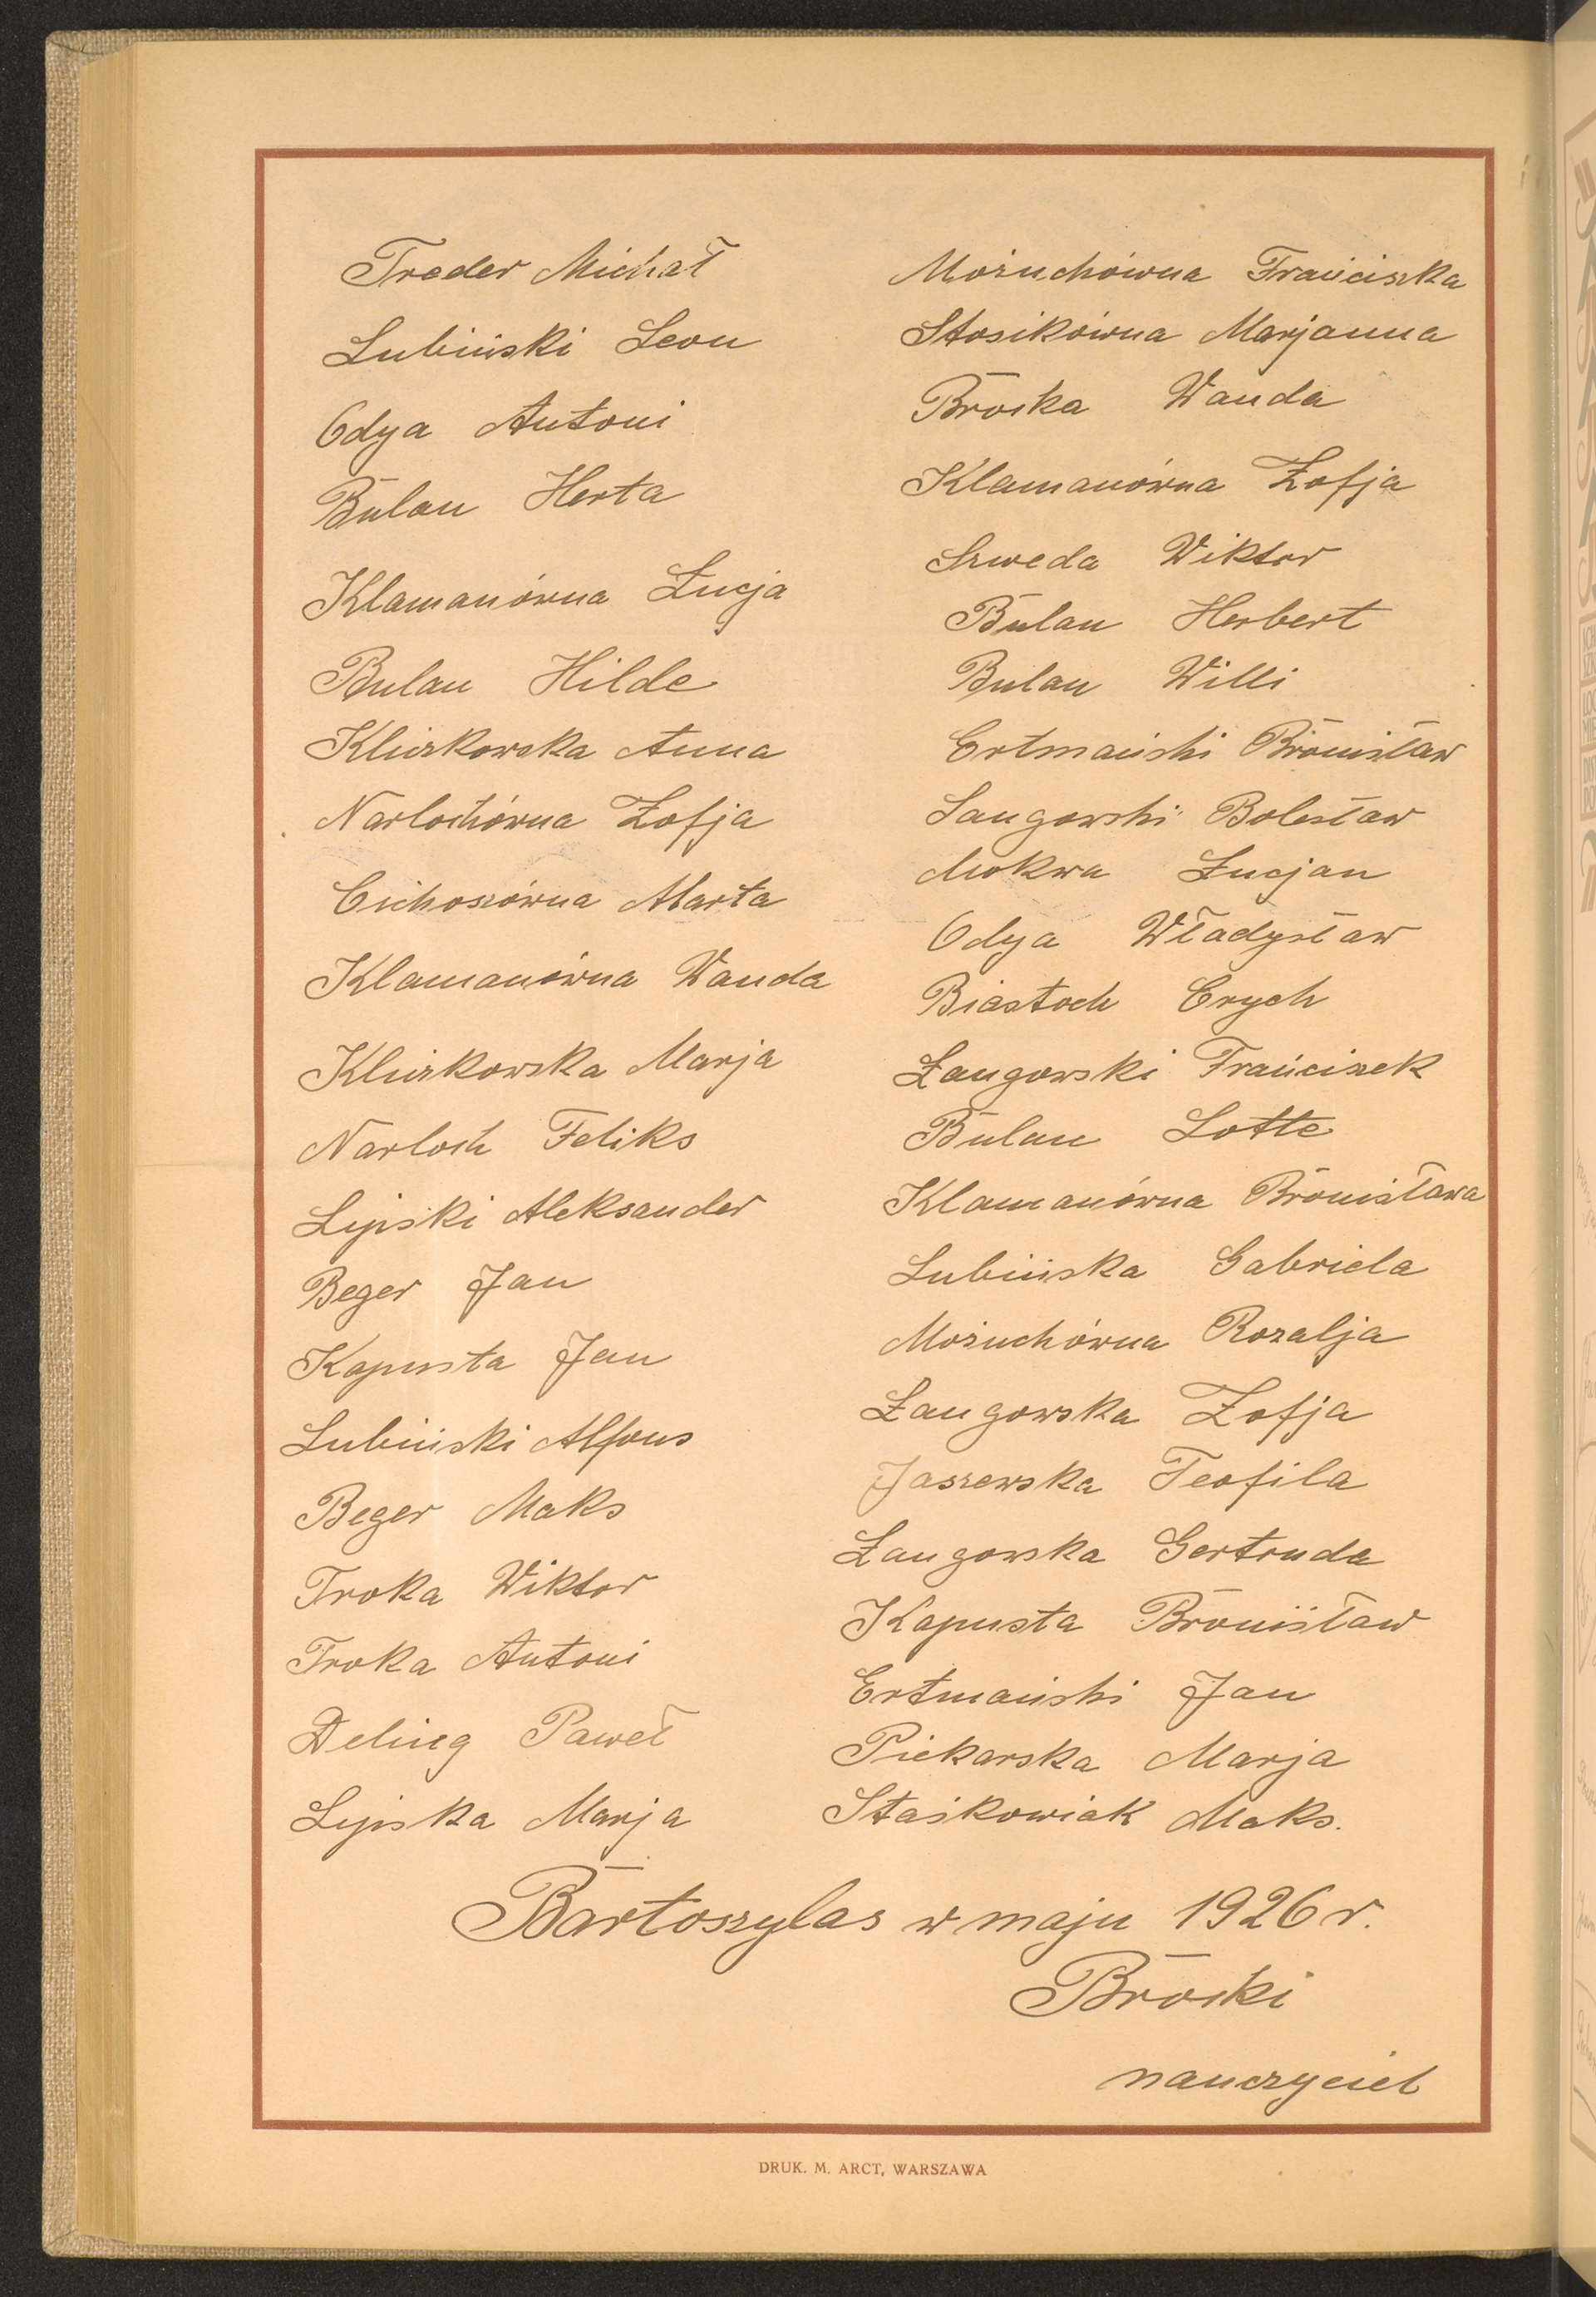 Treder Michał
Lubiński Leon
Odya Antoni
Bulau Herta
Klamanówna Łucja
Bulau Hilde
Kliszkowska Anna
Narlochówna Zofja
Cichoszówna Marta
Klamanówna Wanda
Kliszkowska Marja
Narloch Feliks
Lipski Aleksander
Beger Jan
Kapusta Jan
Lubiński Alfons
Beger Maks
Troka Wiktor
Troka Antoni
Deling Paweł
Lipska Marja
Możuchówna Franciszka
Stosikówna Marjanna
Broska Wanda
Klamanówna Zofja
Szweda Wiktor
Bulau Herbert
Bulau Willi
Ertmański Bronisław
Langowski Bolesław
Mokwa Łucjan
Odya Władysław
Biastoch Erych
Langowski Franciszek
Bulau Lotte
Klamanówna Bronisława
Lubińska Gabriela
Możuchówna Rozalja
Langowska Zofja
Jaszewska Teofila
Langowska Gertruda
Kapusta Bronisław
Ertmański Jan
Piekarska Marja
Staśkowiak Maks.
Bartoszylas w maju 1926 r.
Broski
nauczyciel
DRUK. M. ARCT, WARSZAWA